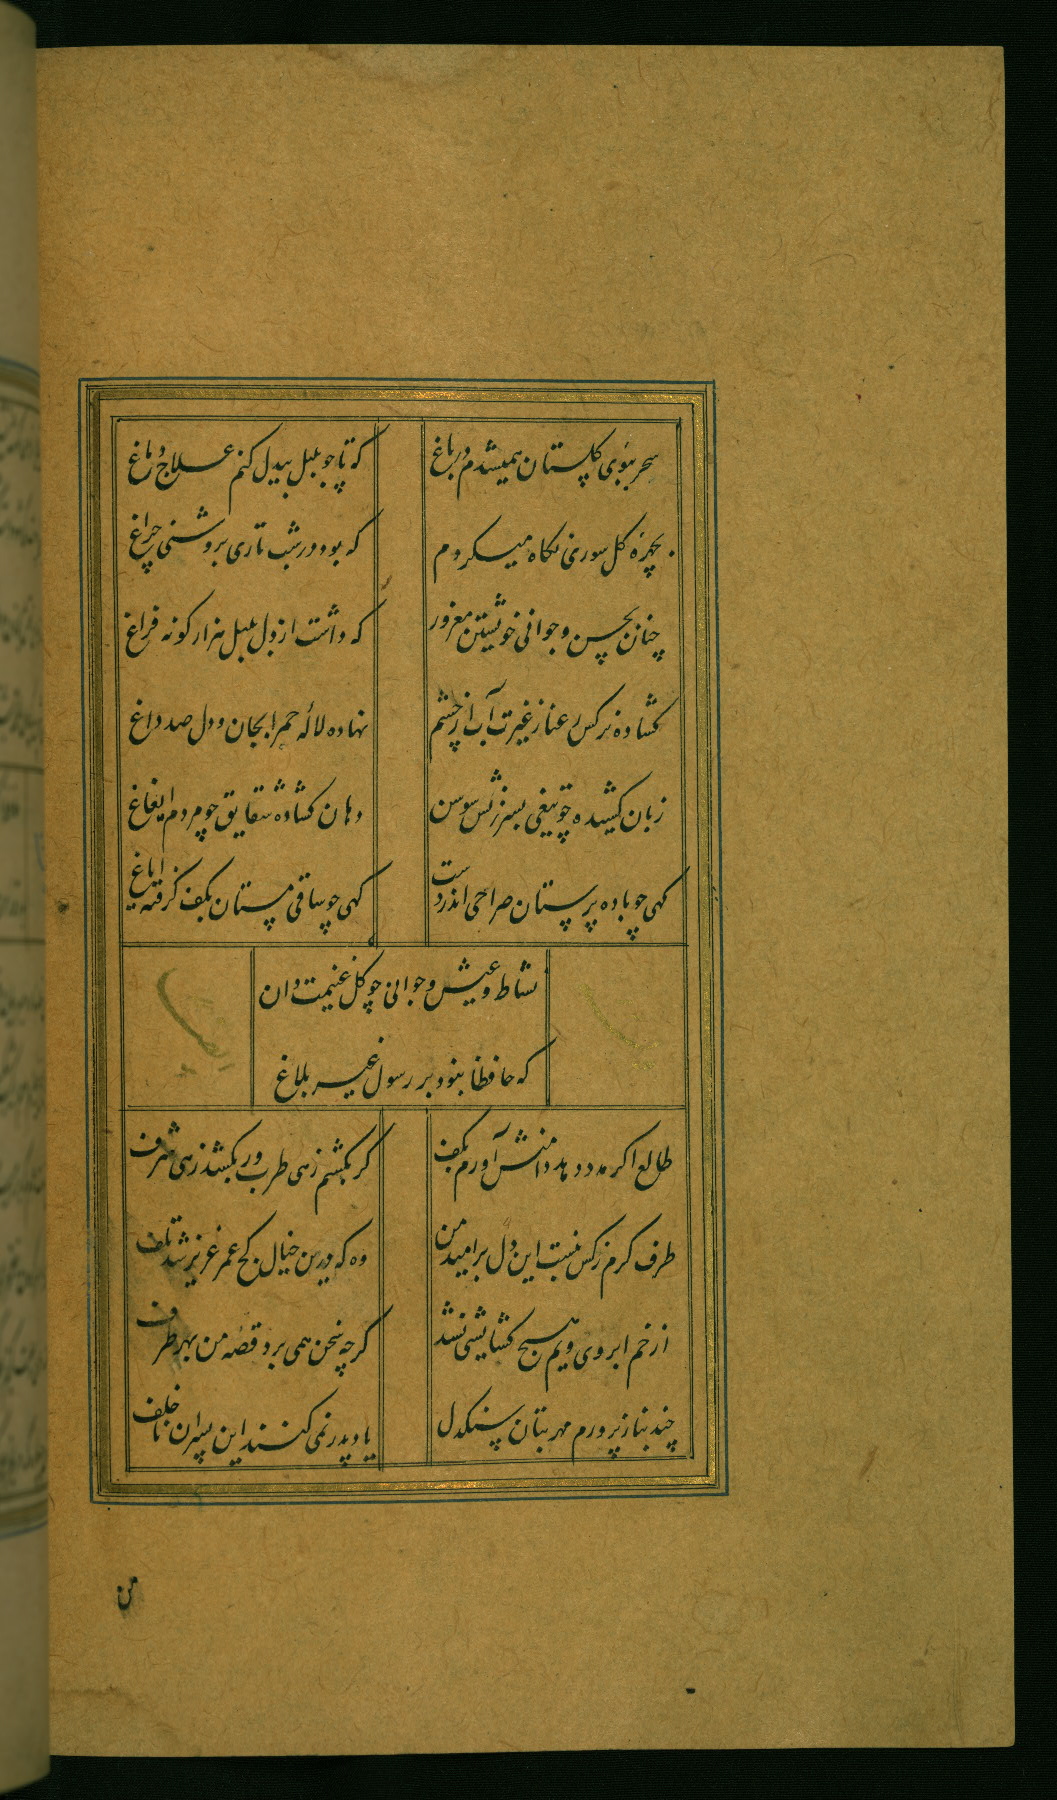 سحر ببوی کلستان همیشدم در باغ
که تا چو بلبل بیدل کنم علاج دماغ
بچهره کل سوری نکاه میکردم
که بود در شب تاری بروشنی چراغ
چنان بحسن و جوانی خویشتن مغرور
که داشت از دل بلبل هزار کونه فراغ
کشاده نرکس رعنا ز غیرت آب از چشم
نهاده لالهٔ حمرا بجان و دل صد داغ
زبان کشیده چو تیغی بسرزنش سوسن
دهان کشاده شقایق چو مردم ایغاغ
کهی چو باده پرستان صراحی اندر دست
کهی چو ساقی مستان بکف کرفته ایاغ
نشاط و عیش و جوانی چو کل غنیمت دان
که حافظا نبود بر رسول غیر بلاغ
طالع اکر مدد دهد دامنش آورم بکف
کر بکشم زهی طرب ور بکشد زهی شرف
طرف کرم ز کس نبست این دل بر امید من
وه که درین خیال کج عمر عزیز شد تلف
از خم ابروی ویم هیچ کشایشی نشد
کرچه سخن همی برد قصه من بهر طرف
چند بناز پرورم مهر بتان سنکدل
یاد پدر نمی کنند این پسران ناخلف
من